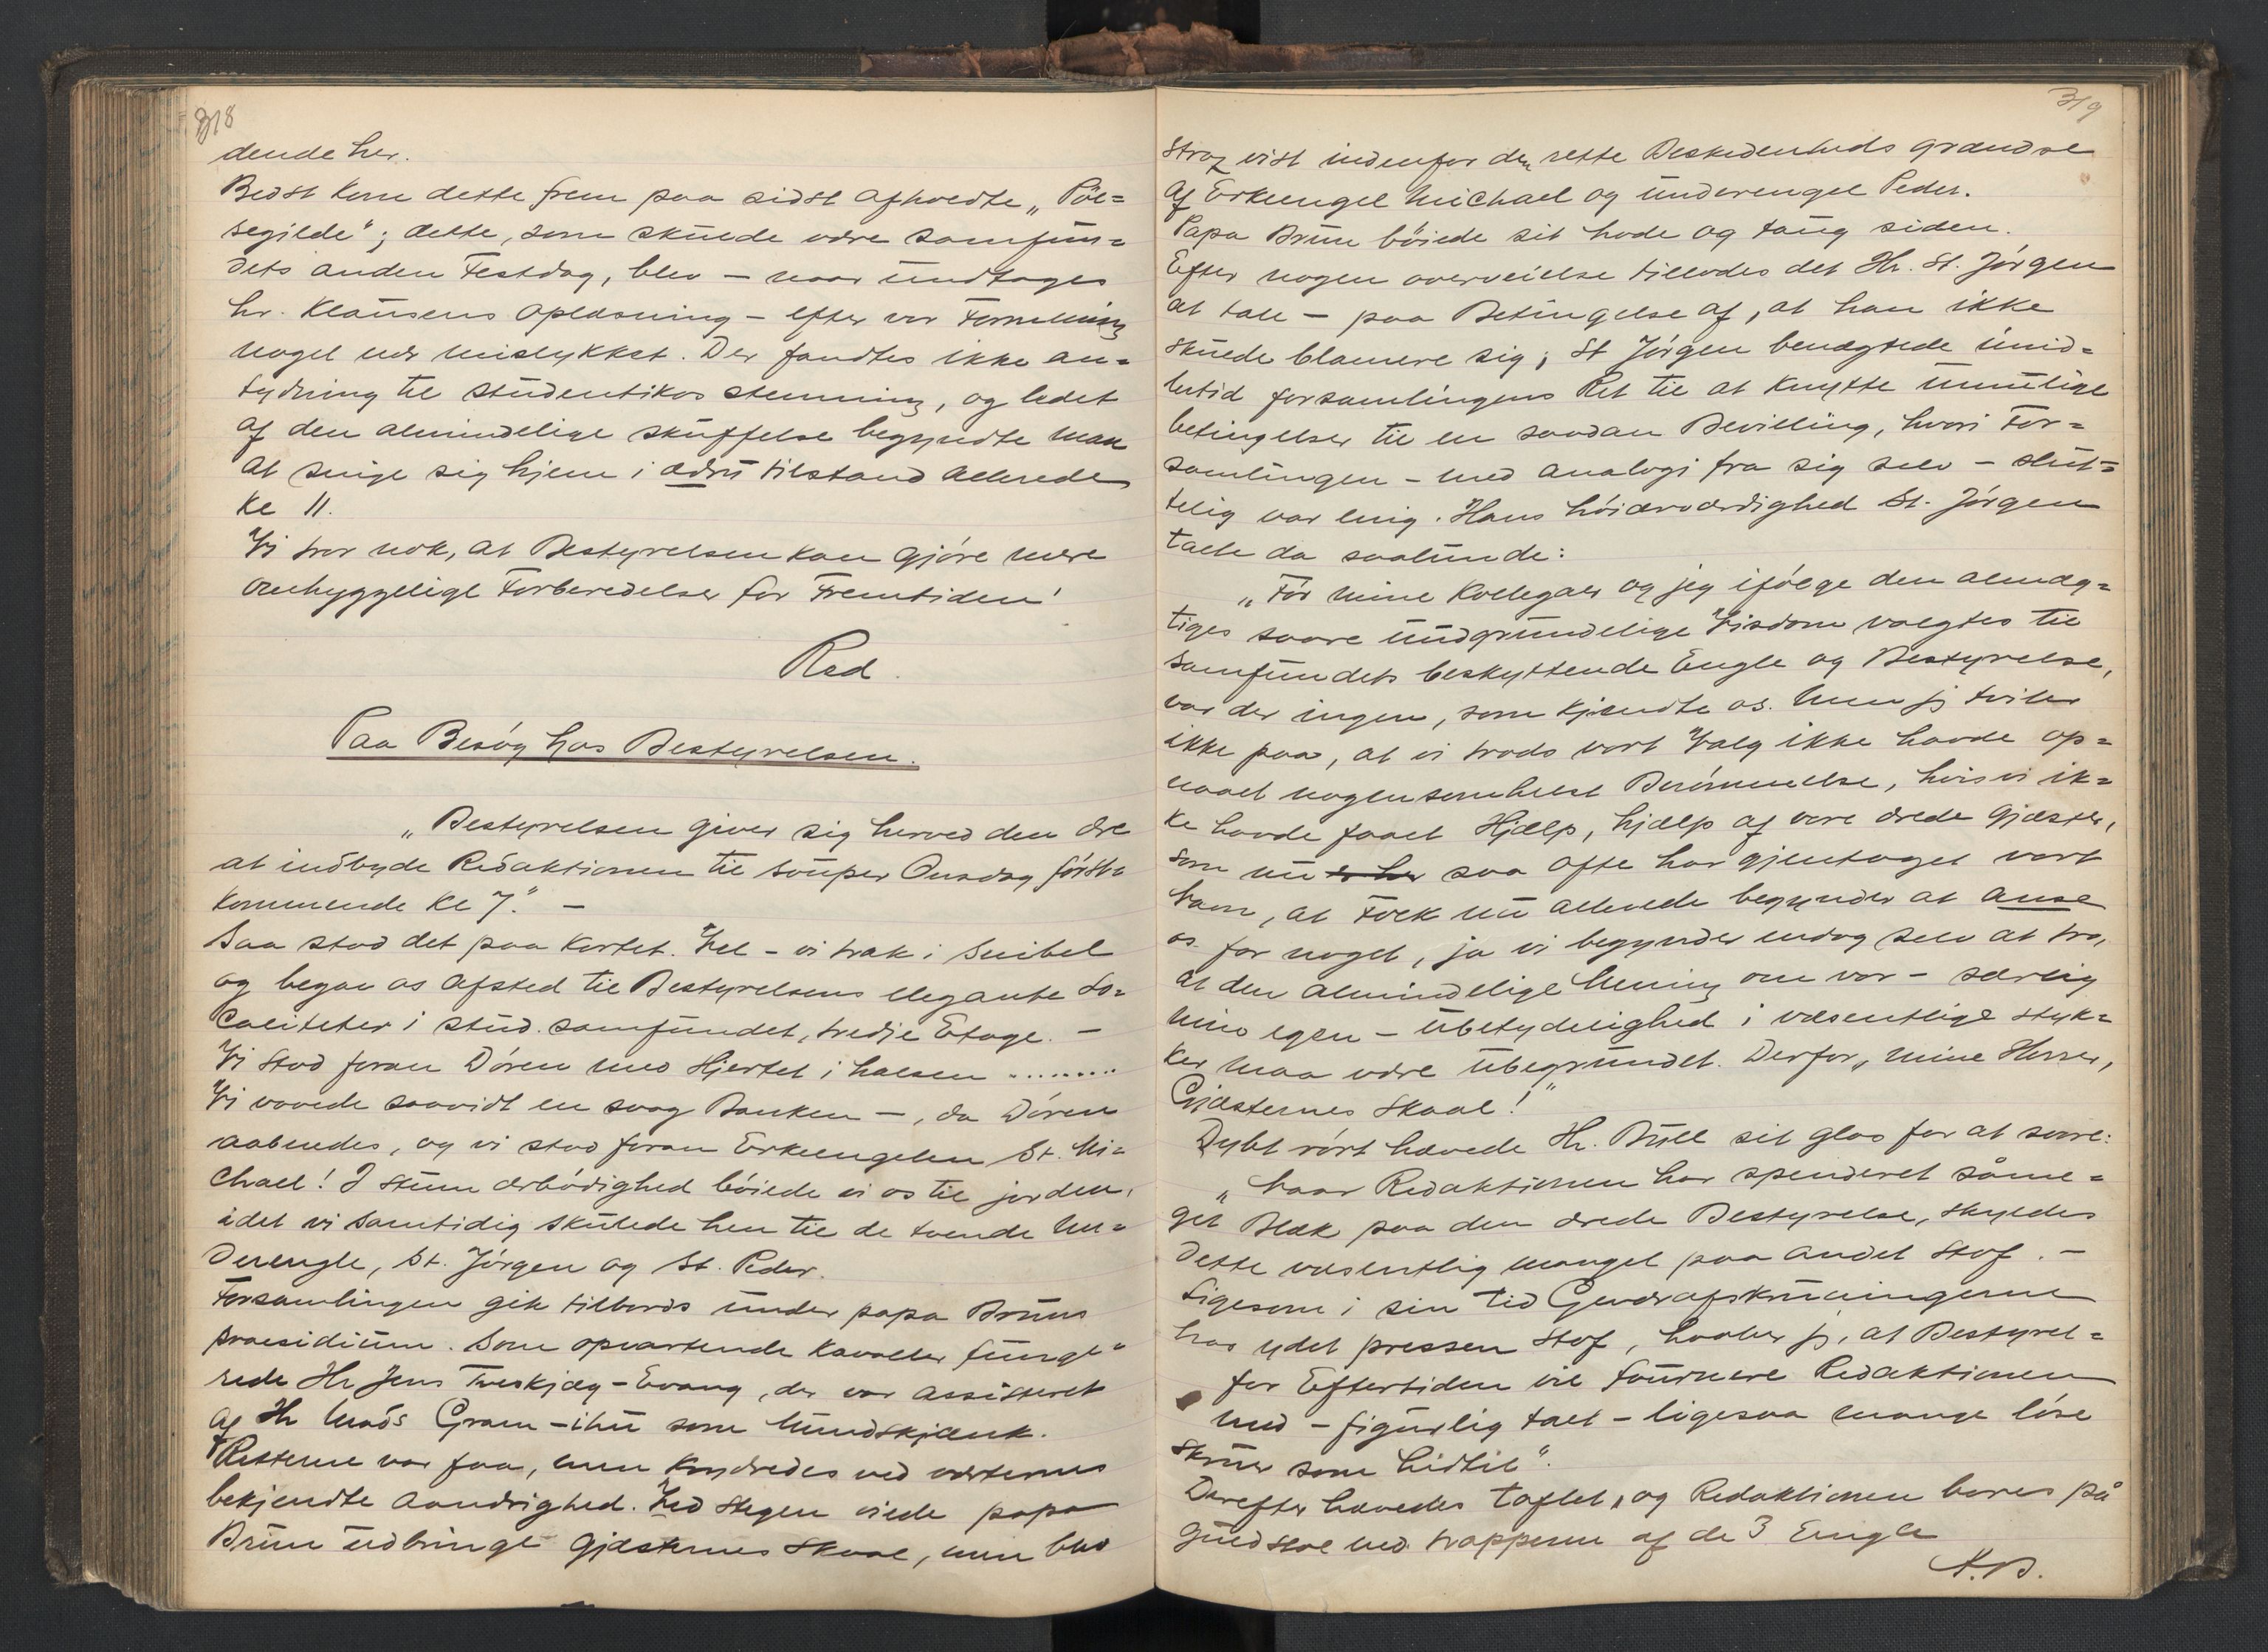 318
dende her.
Bedst kom dette frem paa sidst afholdte „Pöl=
segilde"; dette, som skulde være samfun=
dets anden Festdag, blev – naar undtages
hr. Klausens oplæsning – efter vor Formening
noget nær mislykket. Der fandtes ikke an=
tydning til studentikos stemning, og ledet
af den almindelige skuffelse begyndte man
at snige sig hjem i ædru tilstand allerede
kl 11.
Vi tror nok, at Bestyrelsen kan gjøre mere
omhyggelige Forberedelser for Fremtiden!
Red.
Paa Besøg hos Bestyrelsen.
„Bestyrelsen giver sig herved den ære
at indbyde Redaktionen til souper Onsdag först=
kommende kl 7." –
Saa stod det paa kortet. Vel – vi trak i Snibel
og begav os afsted til Bestyrelsens elegante Lo=
caliteter i stud. samfundet, tredje Etage. –
Vi stod foran Døren med Hjertet i halsen .........
Vi vovede saavidt en svag Banken –, da Døren
aabnedes, og vi stod foran Erkeengelen St. Mi=
chael! I stum ærbødighed bøiede vi os til jorden,
idet vi samtidig skulede hen til de tvende Un=
derengle, St. Jørgen og St. Peder.
Forsamlingen gik tilbords under papa Bruns
præsidium. Som opvartende kavaller funge=
rede Hr Jens Tveskjæg-Evang, der var assisteret
af Hr Mads Gram-ihu som Mundskjænk.
Retterne var faa, men krydredes ved værternes
bekjendte aandrighed. Ved stegen vilde papa
Brun udbringe gjæsternes skaal, men blev
319
strax vist indenfor den rette Beskedenheds grændse
af Erkeengel Michael og underengel Peder.
Papa Brun böiede sit hode og taug siden.
Efter nogen overveielse tillodes det Hr. St. Jørgen
at tale – paa Betingelse af, at han ikke
skulde blamere sig; St Jörgen benægtede imid=
lertid forsamlingens Ret til at knytte umulige
betingelser til en saadan Bevilling, hvori For=
samlingen – med analogi fra sig selv – slut=
telig var enig. Hans høiærværdighed St. Jørgen
talte da saalunde:
„Før mine kollegaer og jeg ifølge den almæg=
tiges saare uudgrundelige Visdom valgtes til
samfundets beskyttende Engle og Bestyrelse,
var der ingen, som kjendte os. Men jeg tviler
ikke paa, at vi trods vort Valg ikke havde op=
naaet nogensomhelst Berømmelse, hvis vi ik=
ke havde faaet Hjælp, hjælp af vore ærede gjæster,
som nu er her saa ofte har gjentaget vort
Navn, at Folk nu allerede begynder at anse
os for noget, ja vi begynder endog selv at tro,
at den almindelige Mening om vor – særlig
min egen – Ubetydelighed i væsentlige styk=
ker maa være ubegrundet. Derfor, mine Herrer,
Gjæsternes skaal!"
Dybt rørt hævede Hr. Bull sit glas for at svare:
„Naar Redaktionen har spenderet såme=
get Blæk paa den ærede Bestyrelse, skyldes
dette væsentlig mangel paa andet Stof. –
Ligesom i sin tid Geværafskruningerne
har ydet pressen Stof, haaber jeg, at Bestyrel=
for Eftertiden vil fournere Redaktionen
med – figurlig talt – ligesaa mange løse
Skruer som hidtil".
Derefter hævedes taflet, og Redaktionen bares på
guldstol ned trapperne af de 3 Engle